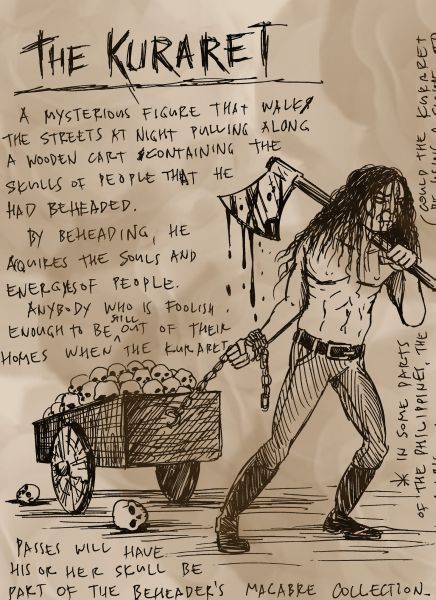 THE KURARET
A MYSTERIOUS FIGURE THAT WALKS
THE STREETS AT NIGHT PULLING ALONG
A WOODEN CART CONTAINING THE
SKULLS OF PEOPLE THAT HE
HAD BEHEADED.
BY BEHEADING, HE
ACQUIRES THE SOULS AND
ENERGYS OF PEOPLE.
ANYBODY WHO IS FOOLISH
ENOUGH TO BE STILL OUT OF THEIR
HOMES WHEN THE KURARET
PASSES WILL HAVE
HIS OR HER SKULL BE
PART OF THE BEHEADER'S MACABRE COLLECTION.
* IN SOME PARTS
OF THE PHILIPPINES, THE
COULD THE KURARET